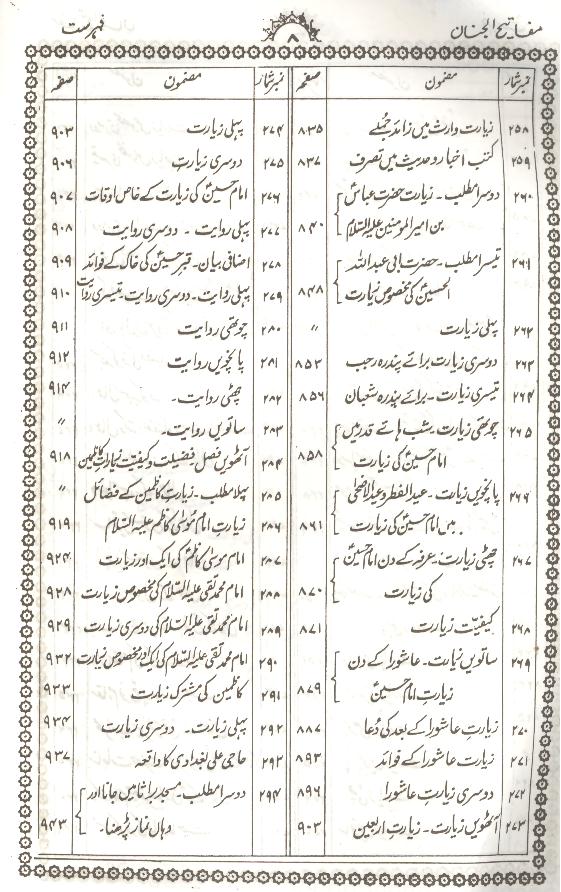 مفاتیح الجنان ۸ فہرست
نمبر شمار مضمون صفحہ
۲۵۸ زیارت وارث میں زائد جملے ۸۳۵
۲۵۹ کتب اخبار و حدیث میں تصرف ۸۳۷
۲۶۰ دوسرا مطلب ۔ زیارت حضرت عباسؑ
بن امیر المومنین علیہ السلام ۸۴۰
۲۶۱ تیسرا مطلب ۔ حضرت ابی عبداللہ
الحسینؑ کی مخصوص زیارت ۸۴۸
۲۶۲ پہلی زیارت ״
۲۶۳ دوسری زیارت برائے پندرہ رجب ۸۵۳
۲۶۴ تیسری زیارت ۔ برائے پندرہ شعبان ۸۵۶
۲۶۵ چوتھی زیارت ۔ شب ہائے قدر میں
امام حسینؑ کی زیارت ۸۵۸
۲۶۶ پانچویں زیارت ۔ عیدالفطر و عیدالاضحیٰ
میں امام حسینؑ کی زیارت ۸۶۱
۲۶۷ چھٹی زیارت ۔ عرفہ کے دن امام حسینؑ
کی زیارت ۸۷۰
۲۶۸ کیفیّت زیارت ۸۷۱
۲۶۹ ساتویں زیارت ۔ عاشورا کے دن
زیارتِ امام حسینؑ ۸۷۹
۲۷۰ زیارتِ عاشورا کے بعد کی دُعا ۸۸۷
۲۷۱ زیارتِ عاشورا کے فوائد ۸۹۳
۲۷۲ دوسری زیارتِ عاشورا ۸۹۶
۲۷۳ آٹھویں زیارت ۔ زیارتِ اربعین ۹۰۳
نمبر شمار مضمون صفحہ
۲۷۴ پہلی زیارت ۹۰۳
۲۷۵ دوسری زیارت ۹۰۶
۲۷۶ امام حسینؑ کی زیارت کے خاص اوقات ۹۰۷
۲۷۷ پہلی روایت ۔ دوسری روایت ۹۰۸
۲۷۸ اضافی بیان ۔ قبر حسینؑ کی خاک کے فوائد ۹۰۹
۲۷۹ پہلی روایت ۔ دوسری روایت ۔ تیسری روایت ۹۱۰
۲۸۰ چوتھی روایت ۹۱۱
۲۸۱ پانچویں روایت ۹۱۲
۲۸۲ چھٹی روایت ۔ ۹۱۴
۲۸۳ ساتویں روایت ۔ ״
۲۸۴ آٹھویں فصل ۔ فضیلت و کیفیت زیارت کاظمین ۹۱۸
۲۸۵ پہلا مطلب ۔ زیارتِ کاظمین کے فضائل ״
۲۸۶ زیارتِ امام موسیٰ کاظم علیہ السلام ۹۱۹
۲۸۷ امام موسیٰ کاظمؑ کی ایک اور زیارت ۹۲۴
۲۸۸ امام محمد تقی علیہ السلام کی مخصوص زیارت ۹۲۸
۲۸۹ امام محمد تقی علیہ السلام کی دوسری زیارت ۹۲۹
۲۹۰ امام محمد تقی علیہ السلام کی ایک اور مخصوص زیارت ۹۳۲
۲۹۱ کاظمین کی مشترک زیارت ۹۳۳
۲۹۲ پہلی زیارت ۔ دوسری زیارت ۹۳۴
۲۹۳ حاجی علی بغدادی کا واقعہ ۹۳۷
۲۹۴ دوسرا مطلب: مسجد براثا میں جانا اور
وہاں نماز پڑھنا ۔ ۹۴۳